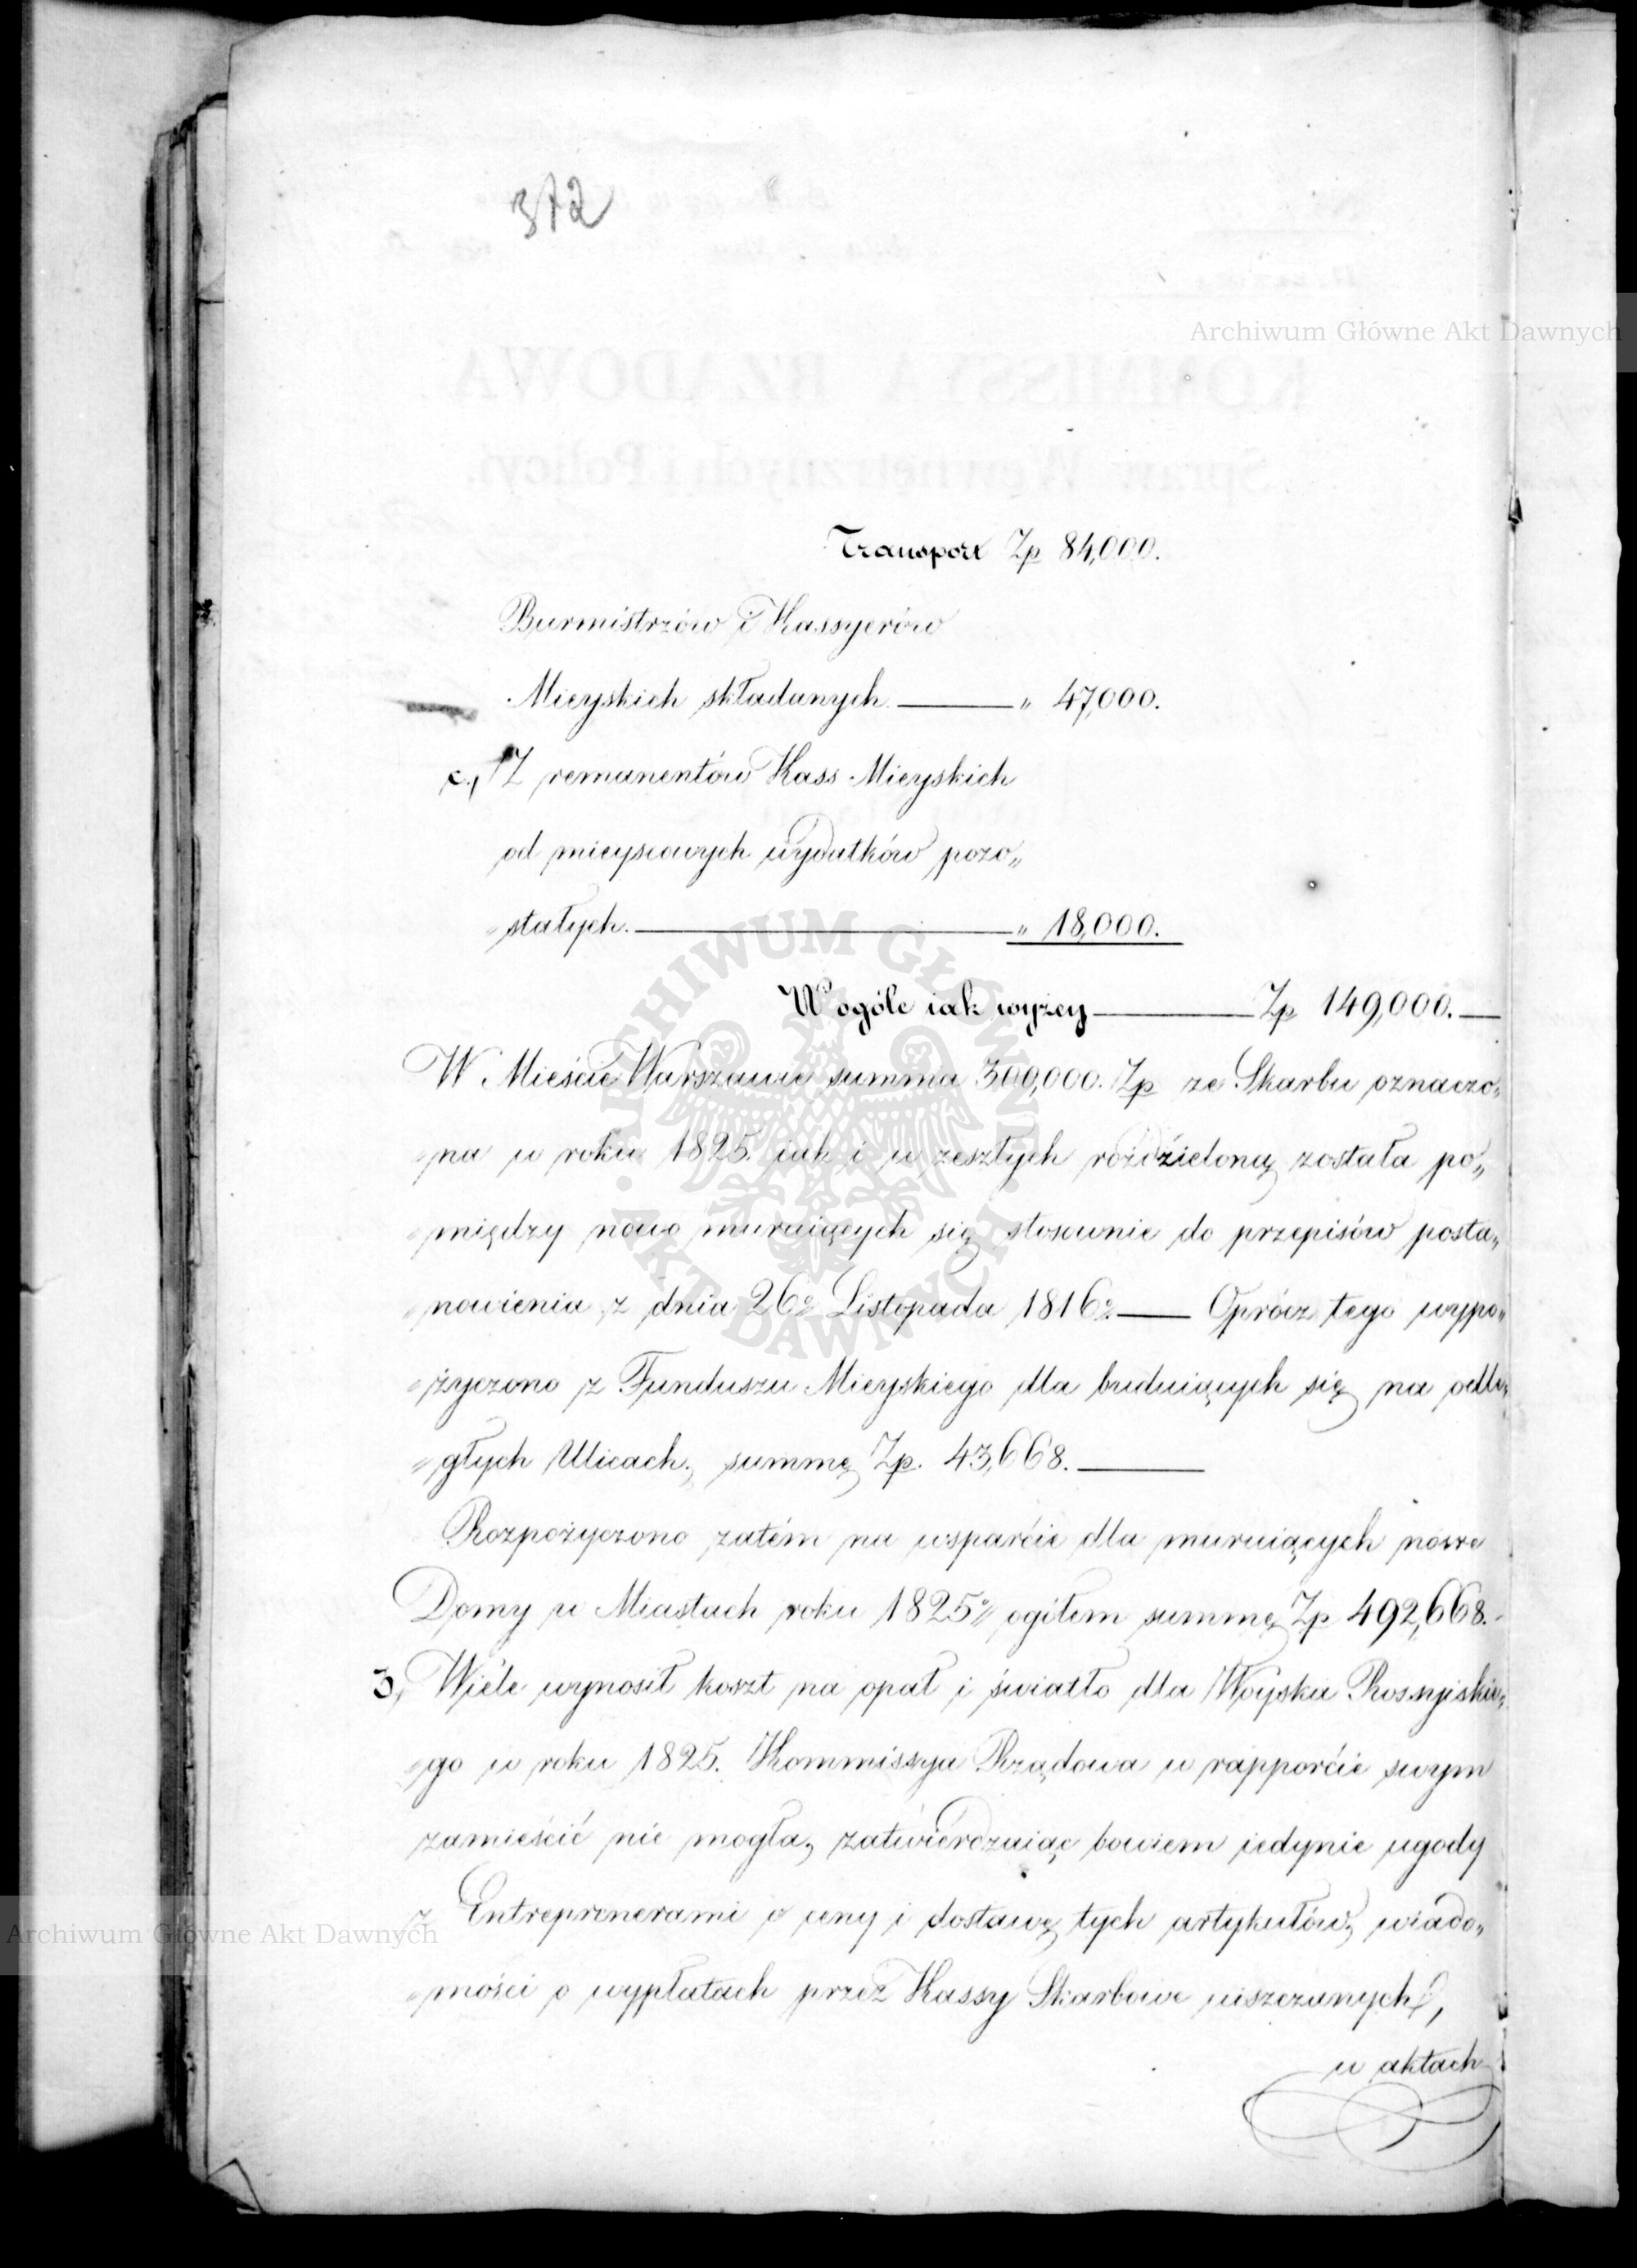 372
Archiwum Główne Akt Dawnych
KOMMISSYA RZĄDOWA
Spraw Wewnętrznych i Policyi.
Transport Zp 84,000.
Burmistrzów i Kassyerów
Mieyskich składanych ——— „ 47,000.
c., Z remanentów Kass Mieyskich
od mieyscowych wydatków pozo„
„stałych. ——— „ 18,000.
W ogóle iak wyżey ——— Zp 149,000. —
W Mieście Warszawie summa 300,000. Zp ze Skarbu oznaczo„
„na w roku 1825. iak i w zeszłych róździeloną została po„
„między nowo muruiących się stosownie do przepisów posta„
„nowienia z dnia 26º Listopada 1816º. —— Oprócz tego wypo„
„życzono z Funduszu Mieyskiego dla buduiących się na odle„
„głych Ulicach, summę Zp. 43,668. ———
Rozpożyczono zatém na wsparćie dla muruiących nowe
Domy w Miastach roku 1825º ogółem summę Zp 492,668. -
3, Wiéle wynosił koszt na opał i światło dla Woyska Rossyiskie„
„go w roku 1825. Kommissya Rządowa w rapporćie swym
zamieścić nie mogła, zatwiérdzaiąc bowiem iedynie ugody
z Entreprenerami o ceny i dostawę tych artykułów, wiado„
„mości o wypłatach przez Kassy Skarbowe uiszczanych,
w aktach
ARCHIWUM GŁÓWNE AKT DAWNYCH
Archiwum Główne Akt Dawnych